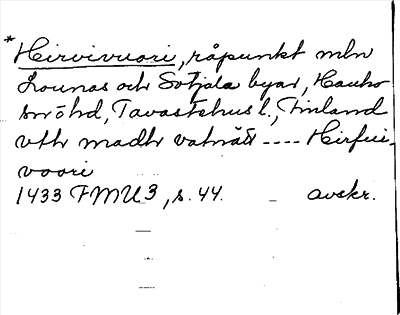 *Hirvivuori, råpunkt mln
Lounas och Sotjala byar, Hauho
sn ö hd, Tavastehus l., Finland
vthr madhr vatnätt ---- Hirfui-
voori
1433 FMU 3, s. 44. avskr.